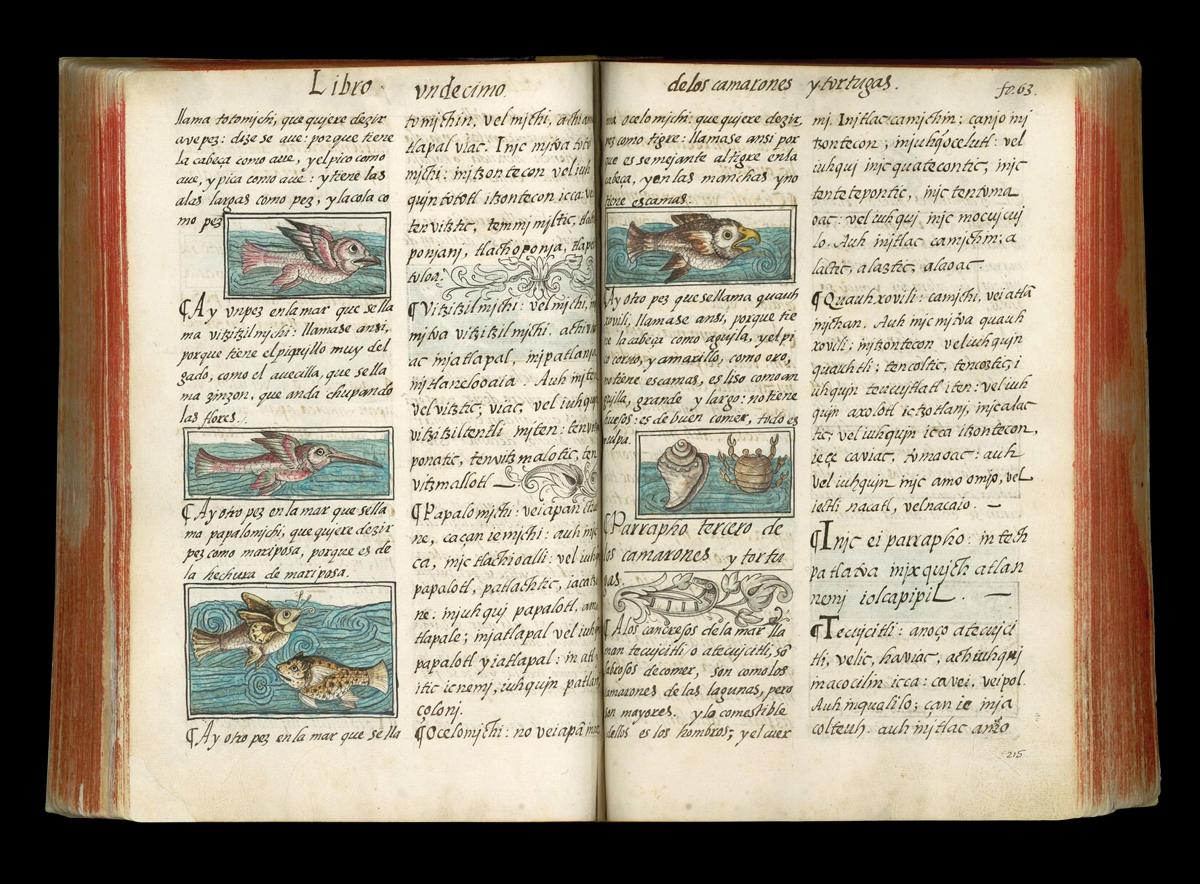 Libro
llama totomichi, que quiere dezir
ave pez: dize se aue: porque tiene
la cabeça como aue, y el pico como
aue, y pica como aue: y tiene las
alas largas como pez, y la cola co
mo pez
¶ Ay vn pez en la mar que se lla
ma vitzitzilmichi: llamase ansi,
porque tiene el piquillo muy del
gado, como el auecilla, que se lla
ma zinzon, que anda chupando
las flores.
¶ Ay otro pez en la mar que se lla
ma papalomichi, que quiere dezir
pez como mariposa, porque es de
la hechura de mariposa.
¶ Ay otro pez en la mar que se lla
vndecimo
tomichin, vel michi,
tlapal vlac. Injc mitva
michi: in itzontecon vel iuh
quin tototl itzontecon icca
tenvitztic, temmimiltic,
ponjanj, tlachoponja,
tuloa.
¶ Vitzitzilmichi: vel michi,
mitva vitzitzilmichi,
ac in jatlapal, in ipatlanja
in itlaneloaia. Auh in iten
vel vitztic; viac, vel iuhquin
vitzitziltentli in iten:
ponatic, tenvitzmalotic, ten
vitzmallotl
¶ Papalomichi: vei apan
ne, ça çan ie michi: auh
injc tlachioalli: vel iuh
papalotl, patlachtic,
ne: in juhqui papalotl,
tlapale; in jatlapal vel iuh
papalotl y iatlapal: in atl
itic ic nemj, iuhquin patlan
colonj.
¶ Ocelomichi: no vei apã
de los camarones y tortugas.
fo. 63.
ma ocelomichi: que quiere dezir,
pez como tigre: llamase ansi por
que es semejante al tigre en la
cabeça, y en las manchas y no
tiene escamas.
Ay otro pez que se llama quauh
xovili, llamase ansi, porque tie
ne la cabeça como aguyla, y el pi
co corvo, y amarillo, como oro,
no tiene escamas, es liso como an
guilla, grande y largo: no tiene
huesos: es de buen comer, todo es
pulpa.
¶ Parrapho tercero de
los camarones y tortu
gas.
¶ A los cancrejos de la mar lla
man tecujcitli o atecujcitli, sõ
sabrosos de comer, son como los
camarones de las lagunas, pero
son mayores. y lo comestible
dellos es los hombros; y el cuer
mj. Injtlac camjchin; ca njo mj
tzontecon, in juhquj ocelutl: vel
iuhquj injc quatecontic, injc
tentetepontic, injc tentoma
oac: vel iuhquj injc mocujcuj
lo. Auh injtlac camjchin; a
lactic, alaztic, alaoac
¶ Quauhxovili: camjchi, vei atlã
mjchan. Auh injc mitva quauh
xovili; in itzontecon vel iuhqujn
quauhtli; tencoltic, tencoztic; i
uhqujn teucujtlatl iten: vel iuh
qujn axolotl ic tzotlanj, injc alac
tic; vel iuhqujn icca itzontecon,
iece caviac, tomaoac: auh
vel iuhqujn injc amo omjo, vel
ixtli nacatl, vel nacaio.
¶ Injc ei parrapho: intech
pa tlatoa in jxqujch atlan
nemj iolcapipil.
¶ Tecujcitli: anoço atecujci
tli, velic, haviac, ach iuhquj
in acocilin icca: ca vei, vei pol.
Auh in qualilo; çan ie in ja
colteuh. auh injtlac amo
215